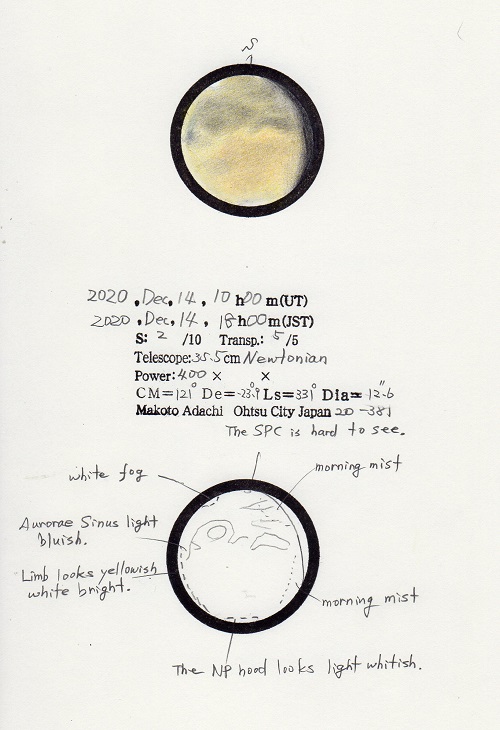 S
2020, Dec, 14, 10 h00 m(UT)
2020, Dec, 14, 19 h00 m(JST)
S: 2 /10 Transp.: 5 /5
Telescope: 35.5cm Newtonian
Power: 400 × ×
CM=121° De=-23.9° Ls=331° Dia=12".6
Makoto Adachi Ohtsu City Japan 20-381
The SPC is hard to see.
white fog
morning mist
Aurorae Sinus light
bluish.
Limb looks yellowish
white bright.
morning mist
The NP hood looks light whitish.